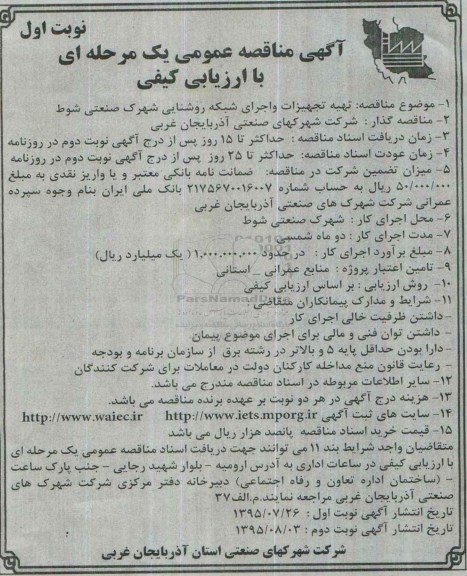 نوبت اول
آگهی مناقصه عمومی یک مرحله ای
با ارزیابی کیفی
۱- موضوع مناقصه: تهیه تجهیزات واجرای شبکه روشنایی شهرک صنعتی شوط
۲- مناقصه گذار : شرکت شهرکهای صنعتی آذربایجان غربی
۳- زمان دریافت اسناد مناقصه : حداکثر تا ۱۵ روز پس از درج آگهی نوبت دوم در روزنامه
۴- زمان عودت اسناد مناقصه: حداکثر تا ۲۵ روز پس از درج آگهی نوبت دوم در روزنامه
۵- میزان تضمین شرکت در مناقصه: ضمانت نامه بانکی معتبر و یا واریز نقدی به مبلغ
۵۰/۰۰۰/۰۰۰ ریال به حساب شماره ۲۱۷۵۶۷۰۰۱۶۰۰۷ بانک ملی ایران بنام وجوه سپرده
عمرانی شرکت شهرک های صنعتی آذربایجان غربی
۶- محل اجرای کار : شهرک صنعتی شوط
۷- مدت اجرای کار : دو ماه شمسی
۸- مبلغ برآورد اجرای کار : در حدود ۱,۰۰۰,۰۰۰,۰۰۰( یک میلیارد ریال)
۹- تامین اعتبار پروژه : منابع عمرانی _ استانی
۱۰- روش ارزیابی : بر اساس ارزیابی کیفی
۱۱- شرایط و مدارک پیمانکاران متقاضی :
- داشتن ظرفیت خالی اجرای کار
- داشتن توان فنی و مالی برای اجرای موضوع پیمان
- دارا بودن حداقل پایه ۵ و بالاتر در رشته برق از سازمان برنامه و بودجه
- رعایت قانون منع مداخله کارکنان دولت در معاملات برای شرکت کنندگان
۱۲- سایر اطلاعات مربوطه در اسناد مناقصه مندرج می باشد.
۱۳- هزینه درج آگهی در هر دو نوبت بر عهده برنده مناقصه می باشد.
۱۴- سایت های ثبت آگهی http://www.iets.mporg.ir http://www.waiec.ir
۱۵- قیمت خرید اسناد مناقصه پانصد هزار ریال می باشد
متقاضیان واجد شرایط بند ۱۱ می توانند جهت دریافت اسناد مناقصه عمومی یک مرحله ای
با ارزیابی کیفی در ساعات اداری به آدرس ارومیه - بلوار شهید رجایی - جنب پارک ساعت
- (ساختمان اداره تعاون و رفاه اجتماعی) دبیرخانه دفتر مرکزی شرکت شهرک های
صنعتی آذربایجان غربی مراجعه نمایند.م.الف۳۷
تاریخ انتشار آگهی نوبت اول : ۱۳۹۵/۰۷/۲۶
تاریخ انتشار آگهی نوبت دوم : ۱۳۹۵/۰۸/۰۳
شرکت شهرکهای صنعتی استان آذربایجان غربی